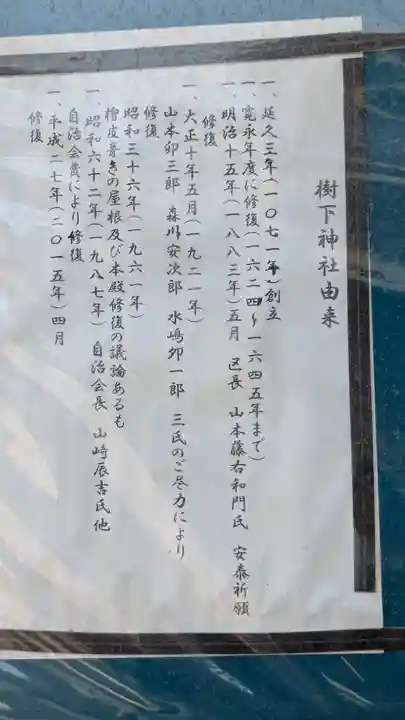 樹下神社由来
一、延久三年(一〇七一年)創立
一、寛永年度に修復(一六二四～一六四五年まで)
一、明治十五年(一八八三年)五月 区長 山本藤右和門氏 安泰祈願
修復
一、大正十年五月(一九二一年)
山本卯三郎 森川安次郎 水嶋卯一郎 三氏のご尽力により
修復
昭和三十六年(一九六一年)
檜皮葺きの屋根及び本殿修復の議論あるも
一、昭和六十二年(一九八七年) 自治会長 山崎辰吉氏他
自治会費により修復
一、平成二七年(二〇一五年)四月
修復